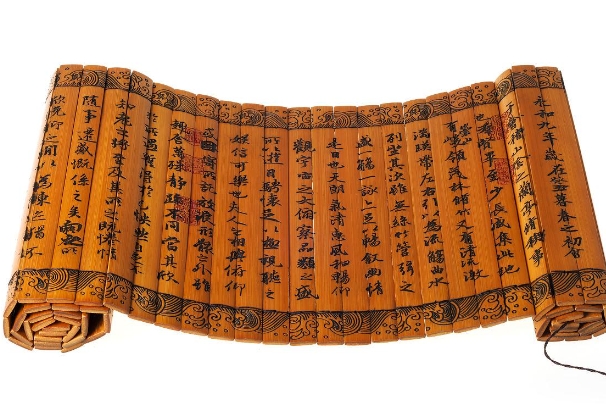 永和九年歲在癸丑暮春之初會
于會稽山陰之蘭亭脩稧事
也羣賢畢至少長咸集此地
有崇山峻領茂林脩竹又有清流激
湍暎帶左右引以為流觴曲水
列坐其次雖無絲竹管弦之
盛一觴一詠亦足以暢敘幽情
是日也天朗氣清惠風和暢仰
觀宇宙之大俯察品類之盛
所以遊目騁懷足以極視聽之
娛信可樂也夫人之相與俯仰
因寄所託放浪形骸之外雖
趣舍萬殊靜躁不同當其欣
於所遇暫得於己快然自足
知老之將至及其所之既惓情
隨事遷感慨係之矣向之所
欣俛仰之間以為陳迹